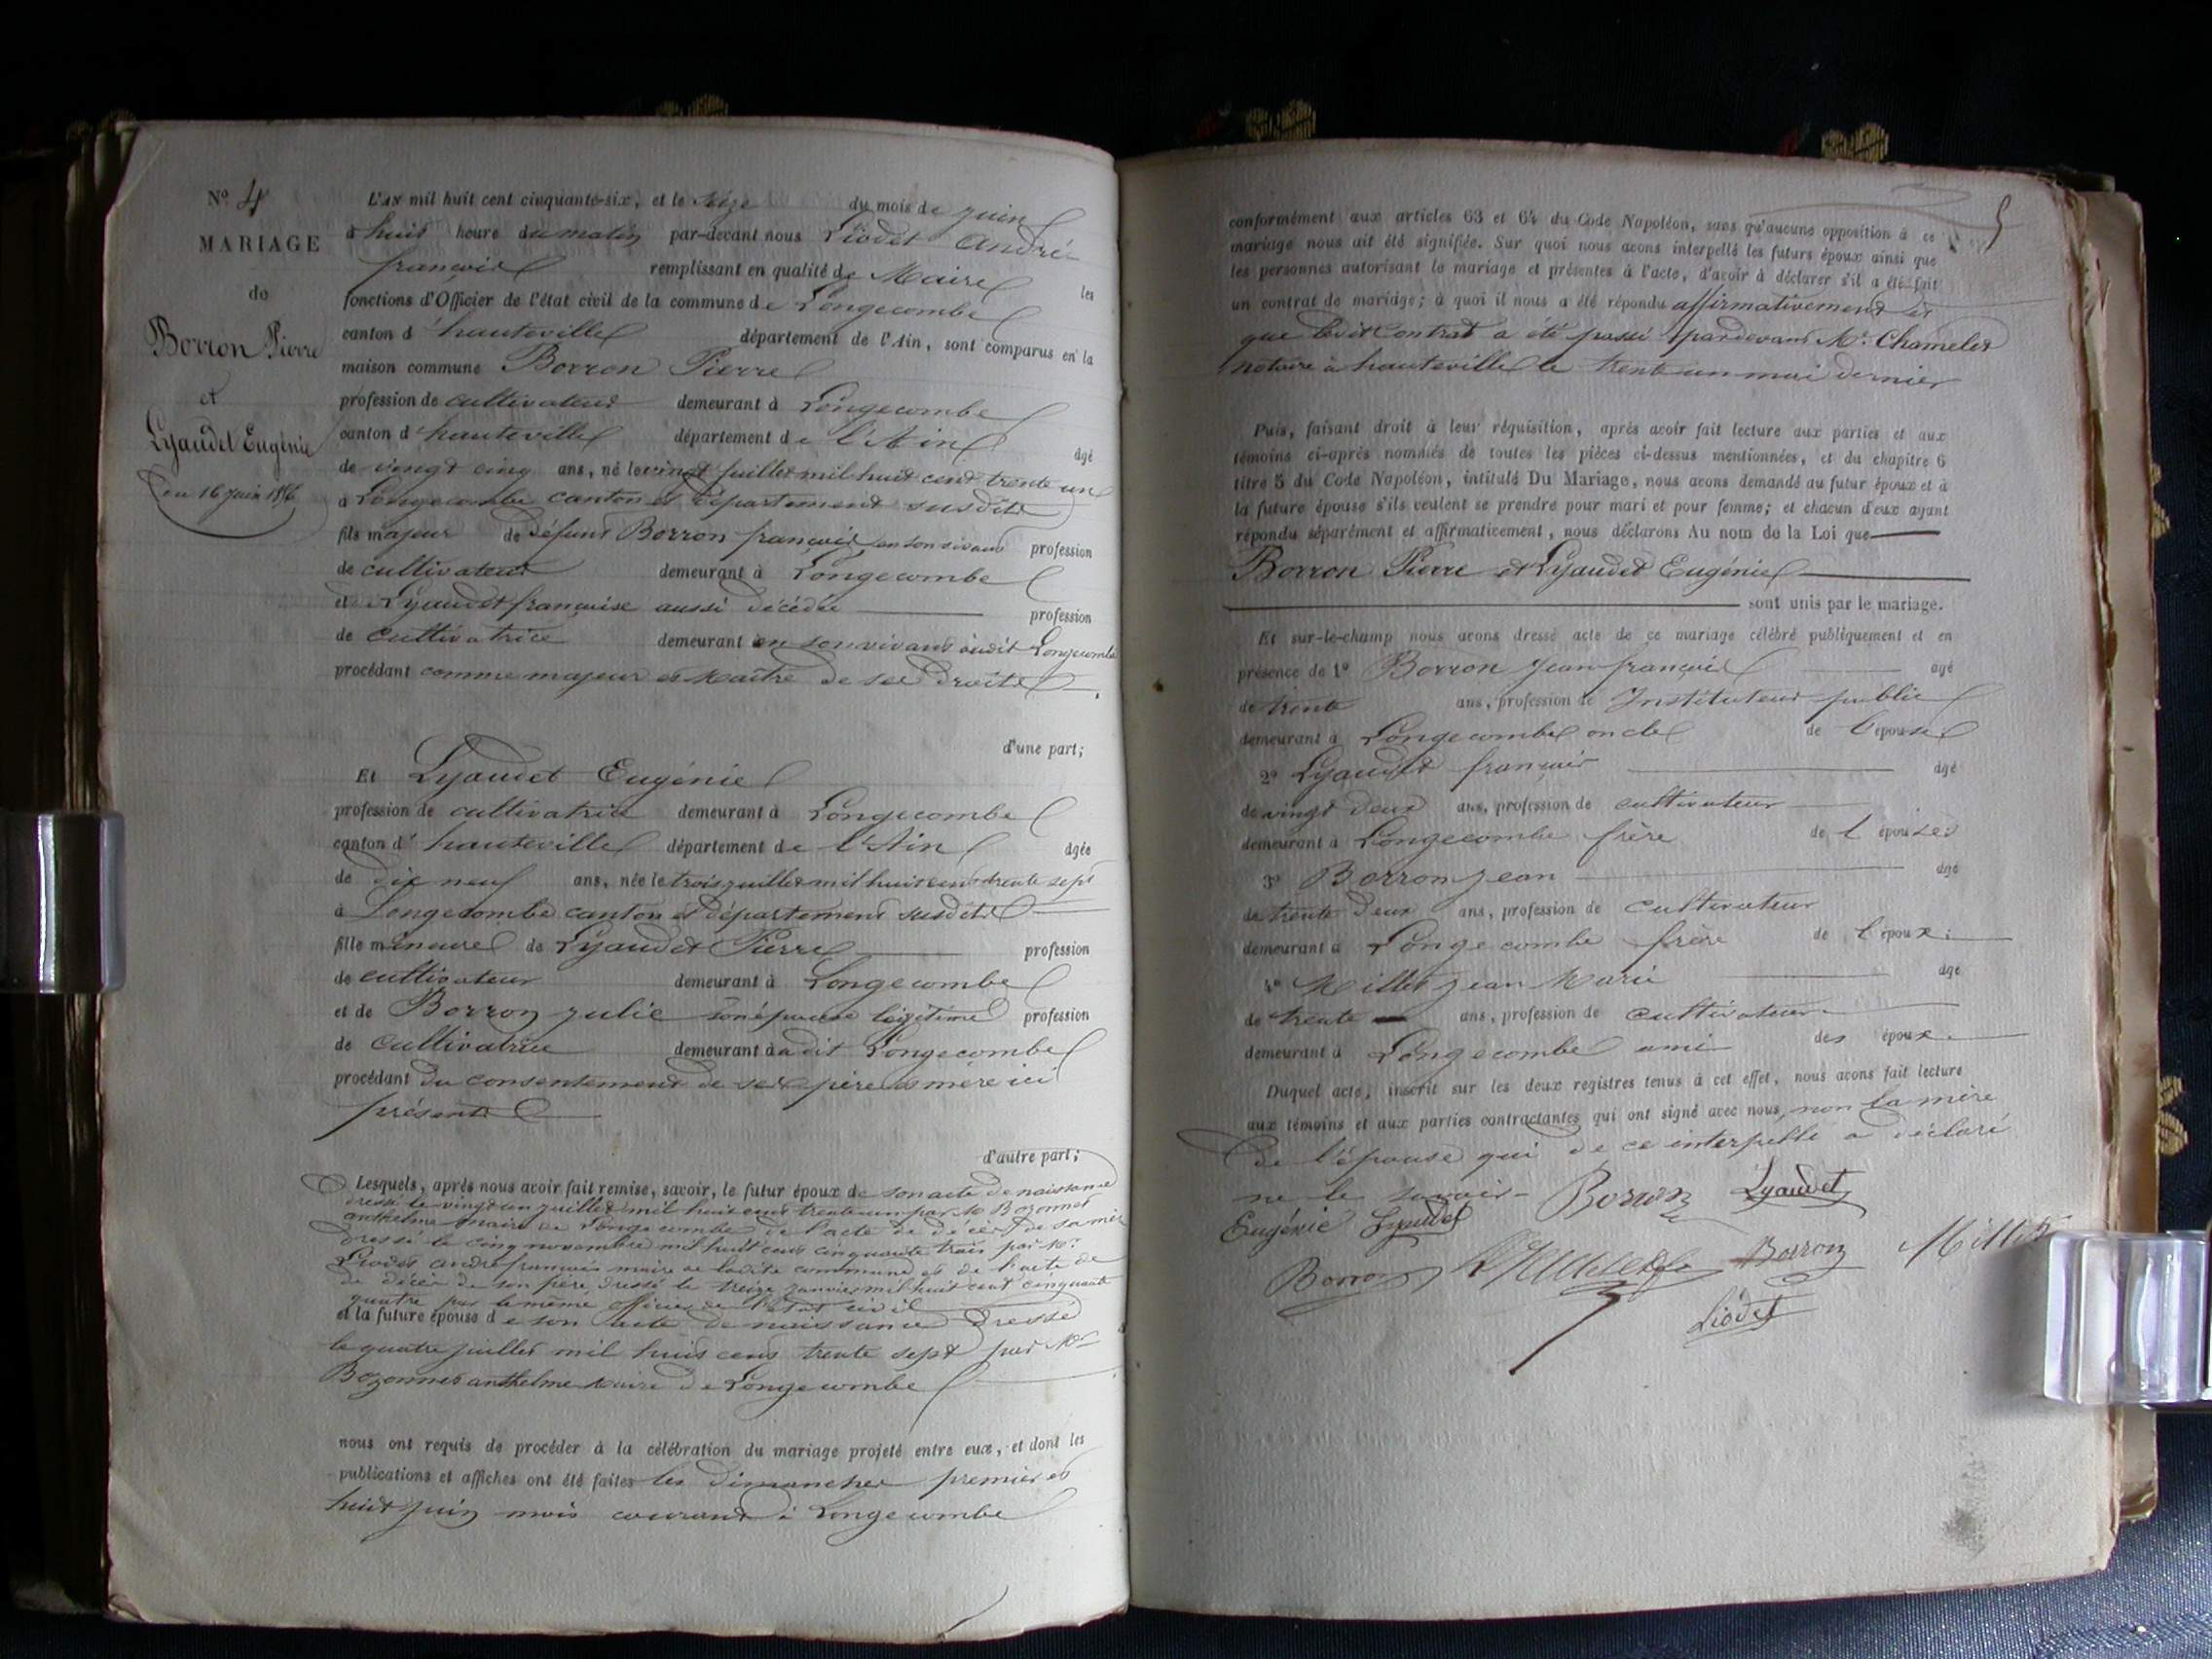 N° 4
MARIAGE
de
Borron Pierre
et
Lyaudet Eugénie
du 16 juin 1856
L'AN mil huit cent cinquante-six, et le seize du mois de juin
à huit heure du matin par-devant nous Liodet André
françois remplissant en qualité de Maire les
fonctions d'Officier de l'état civil de la commune de Longecombe
canton d'hauteville département de l'Ain, sont comparus en la
maison commune Borron Pierre
profession de cultivateur demeurant à Longecombe
canton d'hauteville département de l'Ain âgé
de vingt cinq ans, né le vingt juillet mil huit cent trente un
à Longecombe canton et département susdits
fils majeur de défunt Borron françois en son vivant profession
de cultivateur demeurant à Longecombe
et de Lyaudet françoise aussi décédée profession
de cultivatrice demeurant en son vivant audit Longecombe
procédant comme majeur et maître de ses droits
d'une part;
Et Lyaudet Eugénie
profession de cultivatrice demeurant à Longecombe
canton d'hauteville département de l'Ain âgée
de dix neuf ans, née le trois juillet mil huit cent trente sept
à Longecombe canton et département susdits
fille mineure de Lyaudet Pierre profession
de cultivateur demeurant à Longecombe
et de Borron julie son épouse légitime profession
de cultivatrice demeurant audit Longecombe
procédant du consentement de ses père et mère ici
présents
d'autre part;
Lesquels, après nous avoir fait remise, savoir, le futur époux de son acte de naissance
dressé le vingt un juillet mil huit cent trente un par M. Bozonnet
anthelme maire de Longecombe de l'acte de décès de sa mère
dressé le cinq novembre mil huit cent cinquante trois par Mr
Liodet andré françois maire de ladite commune et de l'acte de
de décès de son père dressé le treize janvier mil huit cent cinquante
quatre par le même officier de l'état civil
et la future épouse de son acte de naissance dressé
le quatre juillet mil huit cent trente sept par Mr
Bozonnet anthelme maire de Longecombe
nous ont requis de procéder à la célébration du mariage projeté entre eux, et dont les
publications et affiches ont été faites les dimanches premier et
huit juin mois courant à Longecombe
5
conformément aux articles 63 et 64 du Code Napoléon, sans qu'aucune opposition à ce
mariage nous ait été signifiée. Sur quoi nous avons interpellé les futurs époux ainsi que
les personnes autorisant le mariage et présentes à l'acte, d'avoir à déclarer s'il a été fait
un contrat de mariage; à quoi il nous a été répondu affirmativement et
que ledit contrat a été passé pardevant Mr. Chamelet
notaire à hauteville le trente un mai dernier
Puis, faisant droit à leur réquisition, après avoir fait lecture aux parties et aux
témoins ci-après nommés de toutes les pièces ci-dessus mentionnées, et du chapitre 6
titre 5 du Code Napoléon, intitulé Du Mariage, nous avons demandé au futur époux et à
la future épouse s'ils veulent se prendre pour mari et pour femme; et chacun d'eux ayant
répondu séparément et affirmativement, nous déclarons Au nom de la Loi que
Borron Pierre et Lyaudet Eugénie
sont unis par le mariage.
Et sur-le-champ nous avons dressé acte de ce mariage célébré publiquement et en
présence de 1° Borron jean françois agé
de trente ans, profession de Instituteur public
demeurant à Longecombe oncle de l'épouse
2° Lyaudet françois agé
de vingt deux ans, profession de cultivateur
demeurant à Longecombe frère de l'épouse
3° Borron jean agé
de trente deux ans, profession de cultivateur
demeurant à Longecombe frère de l'époux.
4° Millet jean Marie agé
de trente ans, profession de cultivateur
demeurant à Longecombe ami des époux.
Duquel acte, inscrit sur les deux registres tenus à cet effet, nous avons fait lecture
aux témoins et aux parties contractantes qui ont signé avec nous, non la mère
de l'épouse qui de ce interpellé a déclaré
ne le savoir - Borron Lyaudet
Eugénie Lyaudet
Borron Borron Millet
Liodet